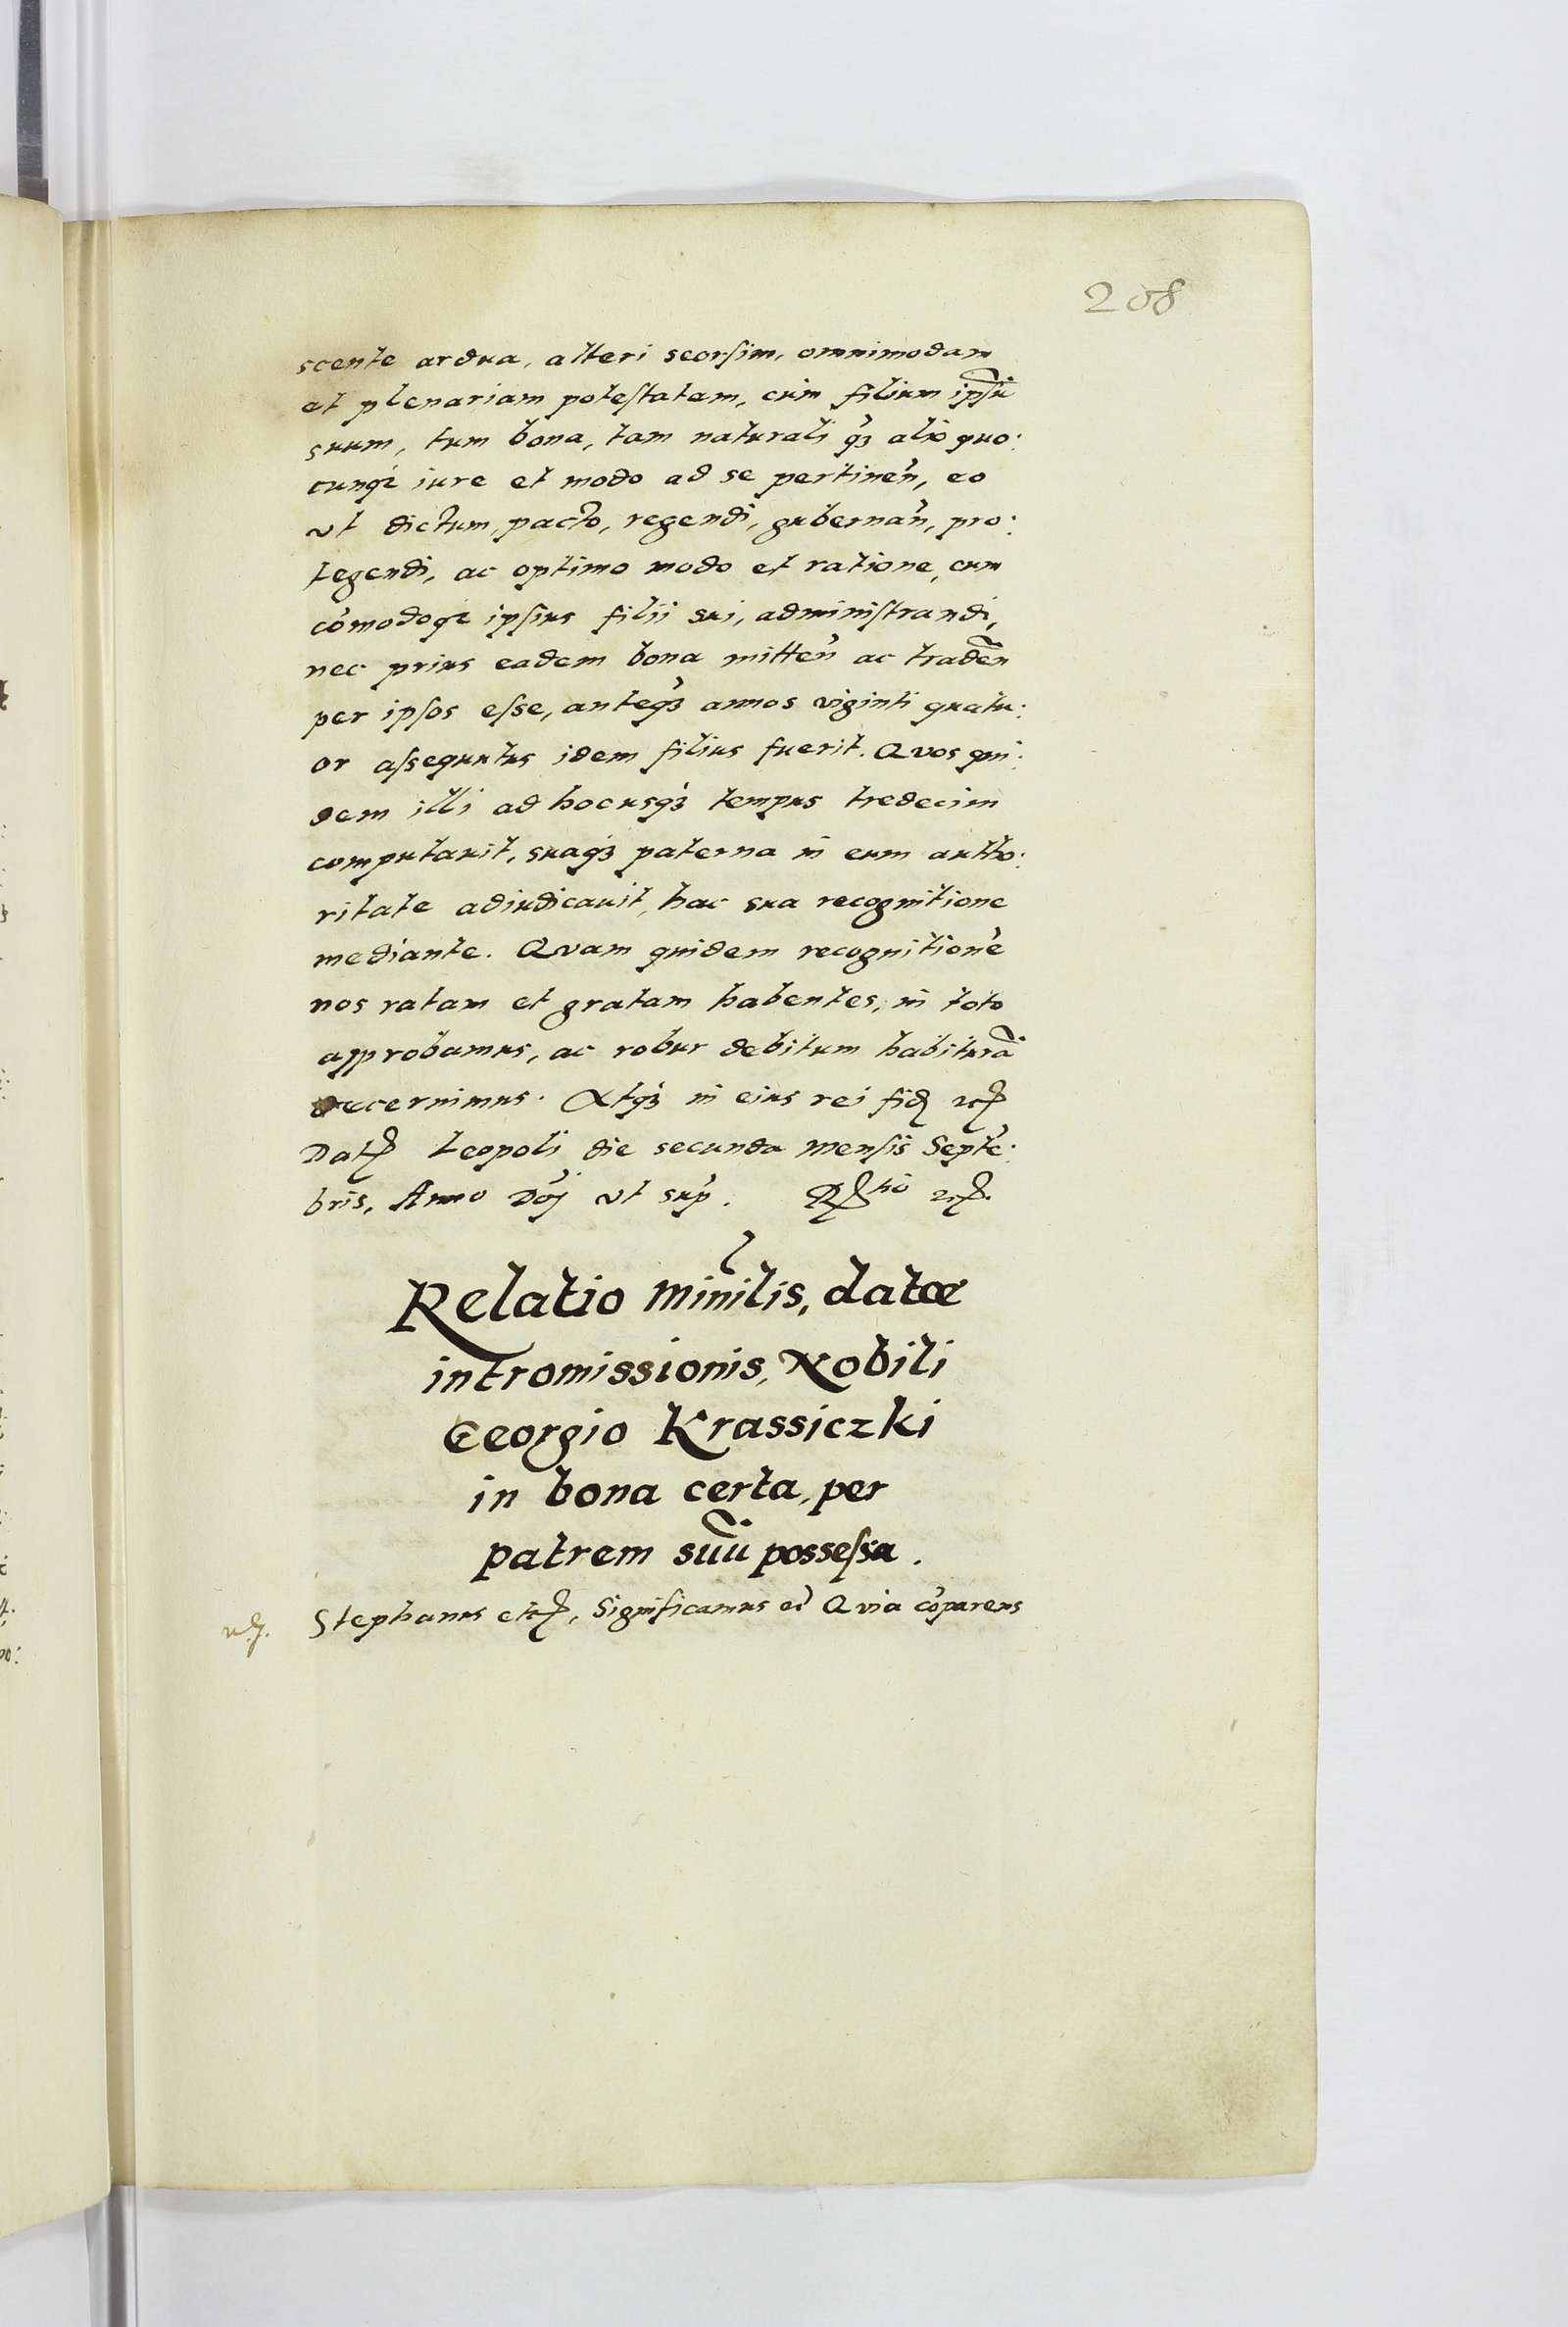 208
scente ardua, alteri seorsim, omnimodam
et plenariam potestatam, cum filium ipsū
suum, tum bona, tam naturali q̃ꝫ alio quo:
cunqꝫ iure et modo ad se pertineñ, eo
vt dictum, pacto, regendi, gubernañ, pro:
tegendi, ac optimo modo et ratione, cum
com̃odoqꝫ ipsius filii sui, administrandi,
nec prius eadem bona mitteñ ac tradeñ
per ipsos esse, anteq̃ꝫ annos viginti quatu:
or assequutus idem filius fuerit. Quos qui:
dem illi ad hocusqꝫ tempus tredecim
computauit, suaqꝫ paterna in eum autho:
ritate adiudicauit, hac sua recognitione
mediante. Quam quidem recognitionē
nos ratam et gratam habentes, in toto
approbamus, ac robur debitum habiturā
decernimus. Atqꝫ in eius rei fid etc
Dat Leopoli die secunda Mensis Septē:
bris, Anno Dñj vt sup̃. R tio etc.
Relatio Minilis, datæ
intromissionis, Nobili
Georgio Krassiczki
in bona certa, per
patrem suū possessa.
Stephanus etc, Significamus et̃ Quia cōparens